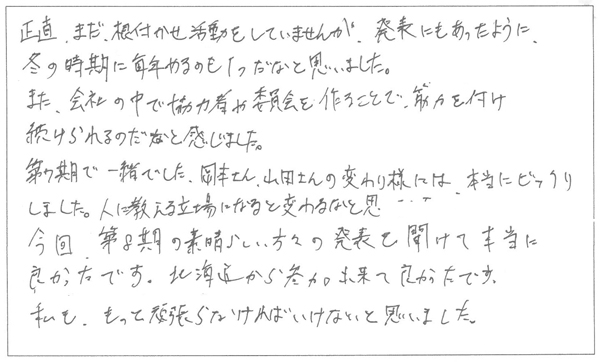 正直、まだ、根付かせ活動をしていませんが、発表にもあったように、
冬の時期に毎年やるのも1つだなと思いました。
また、会社の中で協力者や委員会を作ることで、筋力を付け
続けられるのだなと感じました。
第7期で一緒でした、岡本さん、山田さんの変わり様には、本当にビックリ
しました。人に教える立場になると変わるなと思・・・
今回、第8期の素晴らしい方々の発表を聞けて本当に
良かったです。北海道から参加出来て良かったです。
私も、もっと頑張らなければいけないと思いました。